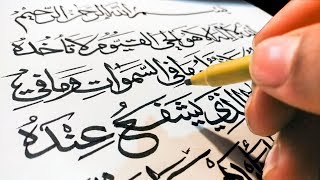 بسم الله الرحمن الرحيم
الله لا اله الا هو الحي القيوم لا تأخذه
ما في السموات وما في
الذي يشفع عنده